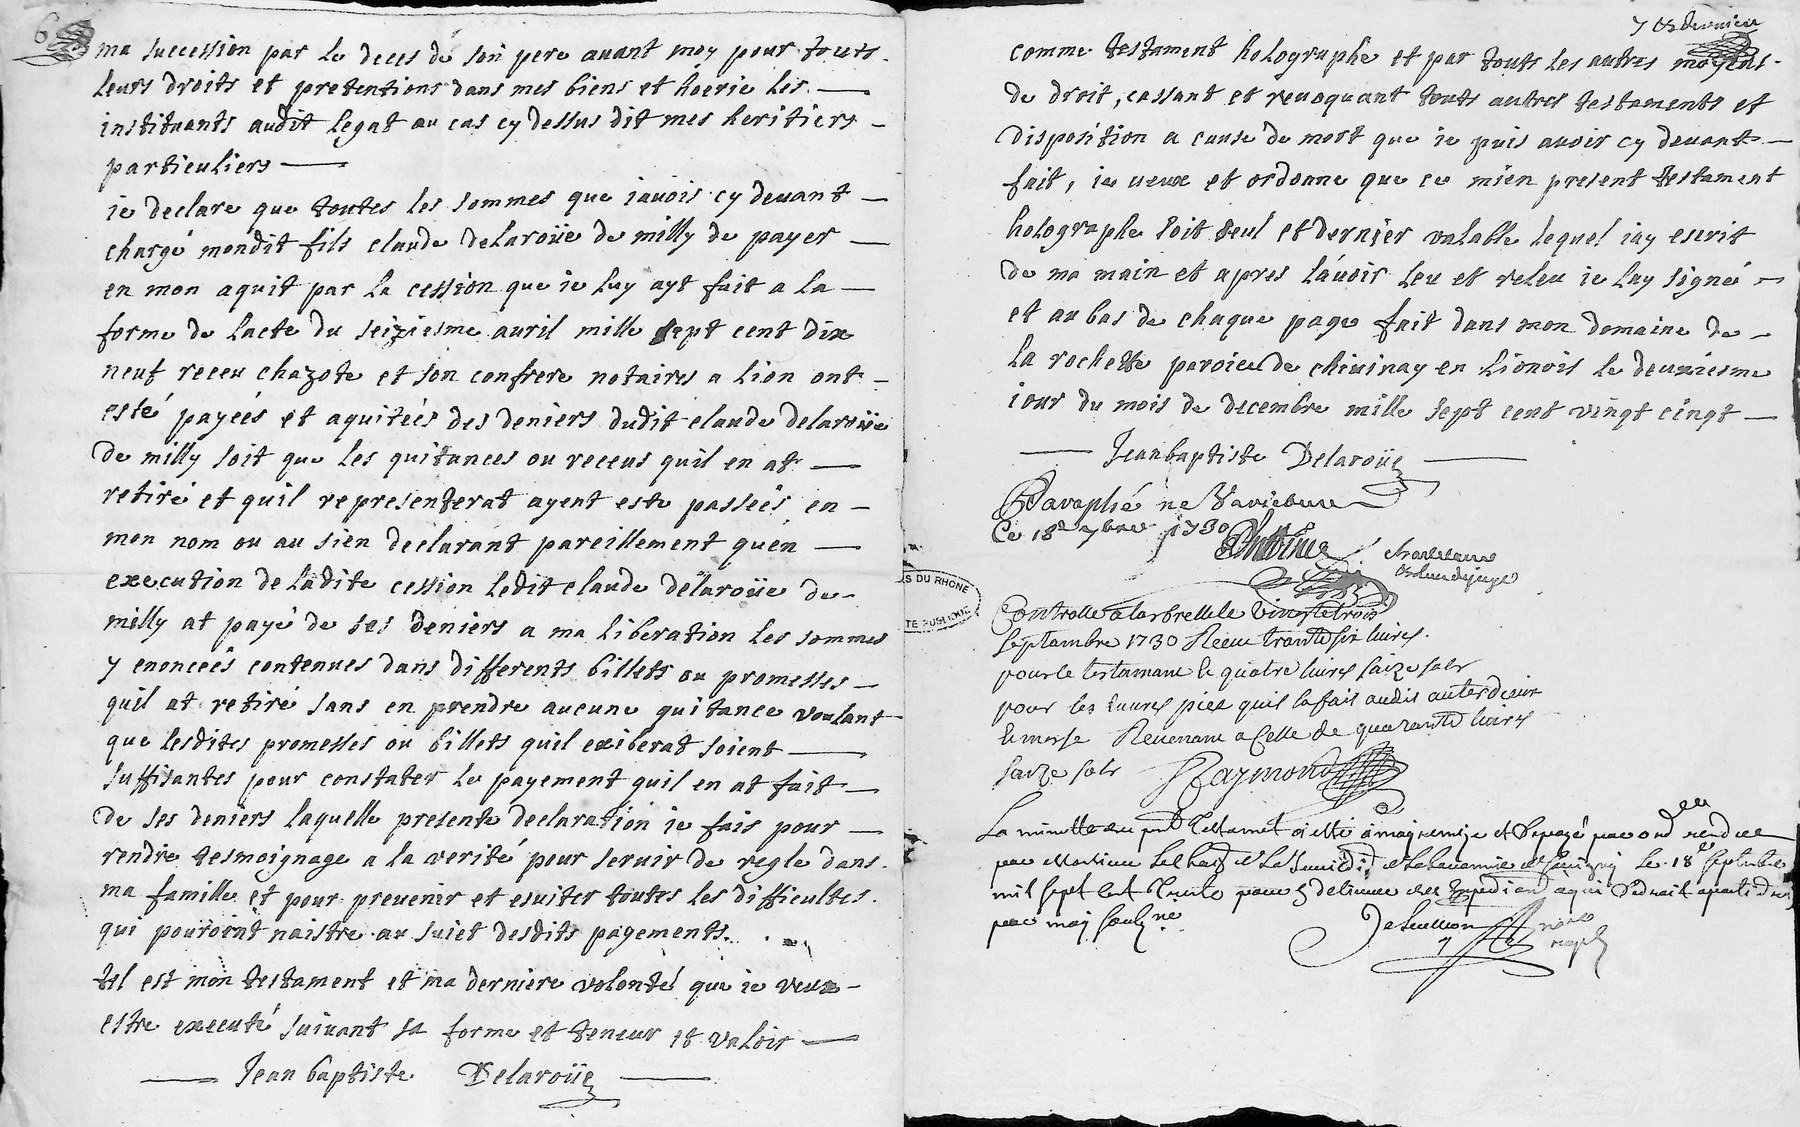 6
ma succession par le deces de son pere avant moy pour touts
leurs droits et pretentions dans mes biens et hoerie les
instituants audit legat au cas cy dessus dit mes heritiers
particuliers
ie declare que toutes les sommes que iavois cy devant
chargé mondit fils claude delaroüe de milly de payer
en mon aquit par la cession que ie luy ayt fait a la
forme de lacte du seiziesme avril mille sept cent dix
neuf receu chazote et son confrere notaires a lion ont
esté payéés et aquitéés des deniers dudit claude delaroüe
de milly soit que les quitances ou receus quil en at
retiré et quil representerat ayent esté passéés en
mon nom ou au sien declarant pareillement quen
execution de ladite cession ledit claude delaroüe de
milly at payé de ses deniers a ma liberation les sommes
y enoncéés contenues dans differents billets ou promesses
quil at retiré sans en prendre aucune quitance voulant
que lesdites promesses ou billets quil exiberat soient
suffisantes pour constater le payement quil en at fait
de ses deniers laquelle presente declaration ie fais pour
rendre tesmoignage a la verité pour servir de regle dans
ma famille et pour prevenir et esviter toutes les difficultes
qui pouroint naistre au sujet desdits payements.
tel est mon testament et ma derniere volonté que ie veux
estre executé suivant sa forme et teneur et valoir
Jean baptiste Delaroüe
7 et derniere
comme testament holographe et par touts les autres moyens
de droit, cassant et revoquant touts autres testaments et
disposition a cause de mort que ie puis avoir cy devant
fait, ie veux et ordonne que ce mien present testament
holographe soit seul et dernier valable lequel iay escrit
de ma main et apres lavoir leu et releu ie lay signé
et au bas de chaque page fait dans mon domaine de
la rochette paroice de chivinay en Lionois le deuxiesme
iour du mois de decembre mille sept cent vingt cinqt
Jean baptiste Delaroüe
Paraphé ne Varietur
Ce 18e 7bre 1730
S DU RHONE
TE PUBLIQUE
Controlle a larbrelle le vingt et trois
septambre 1730 Receu trante six livres
pour le testamant et quatre livres saize sols
pour les euvres pies quil la fait audit
Revenant a Celle de quarante livres
saize sols Raymond
La minutte du pnt Testament a esté a moy remize et
par le 18e septembre
mil sept cent Trente pour
par moy soubz ne